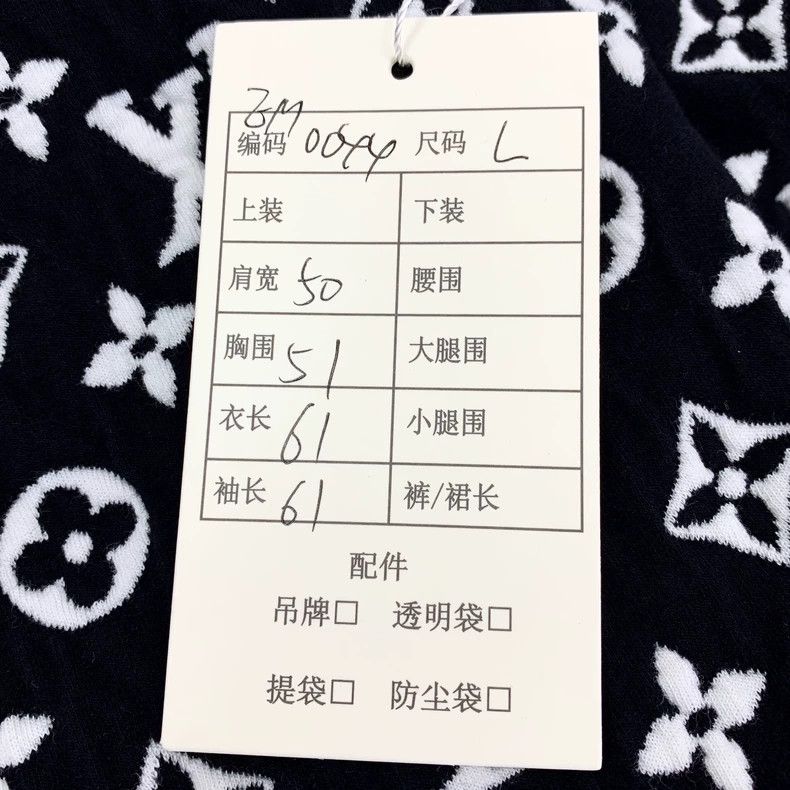 编码 0044 尺码 L
上装 下装
肩宽 50 腰围
胸围 51 大腿围
衣长 61 小腿围
袖长 61 裤/裙长
配件
吊牌□ 透明袋□
提袋□ 防尘袋□